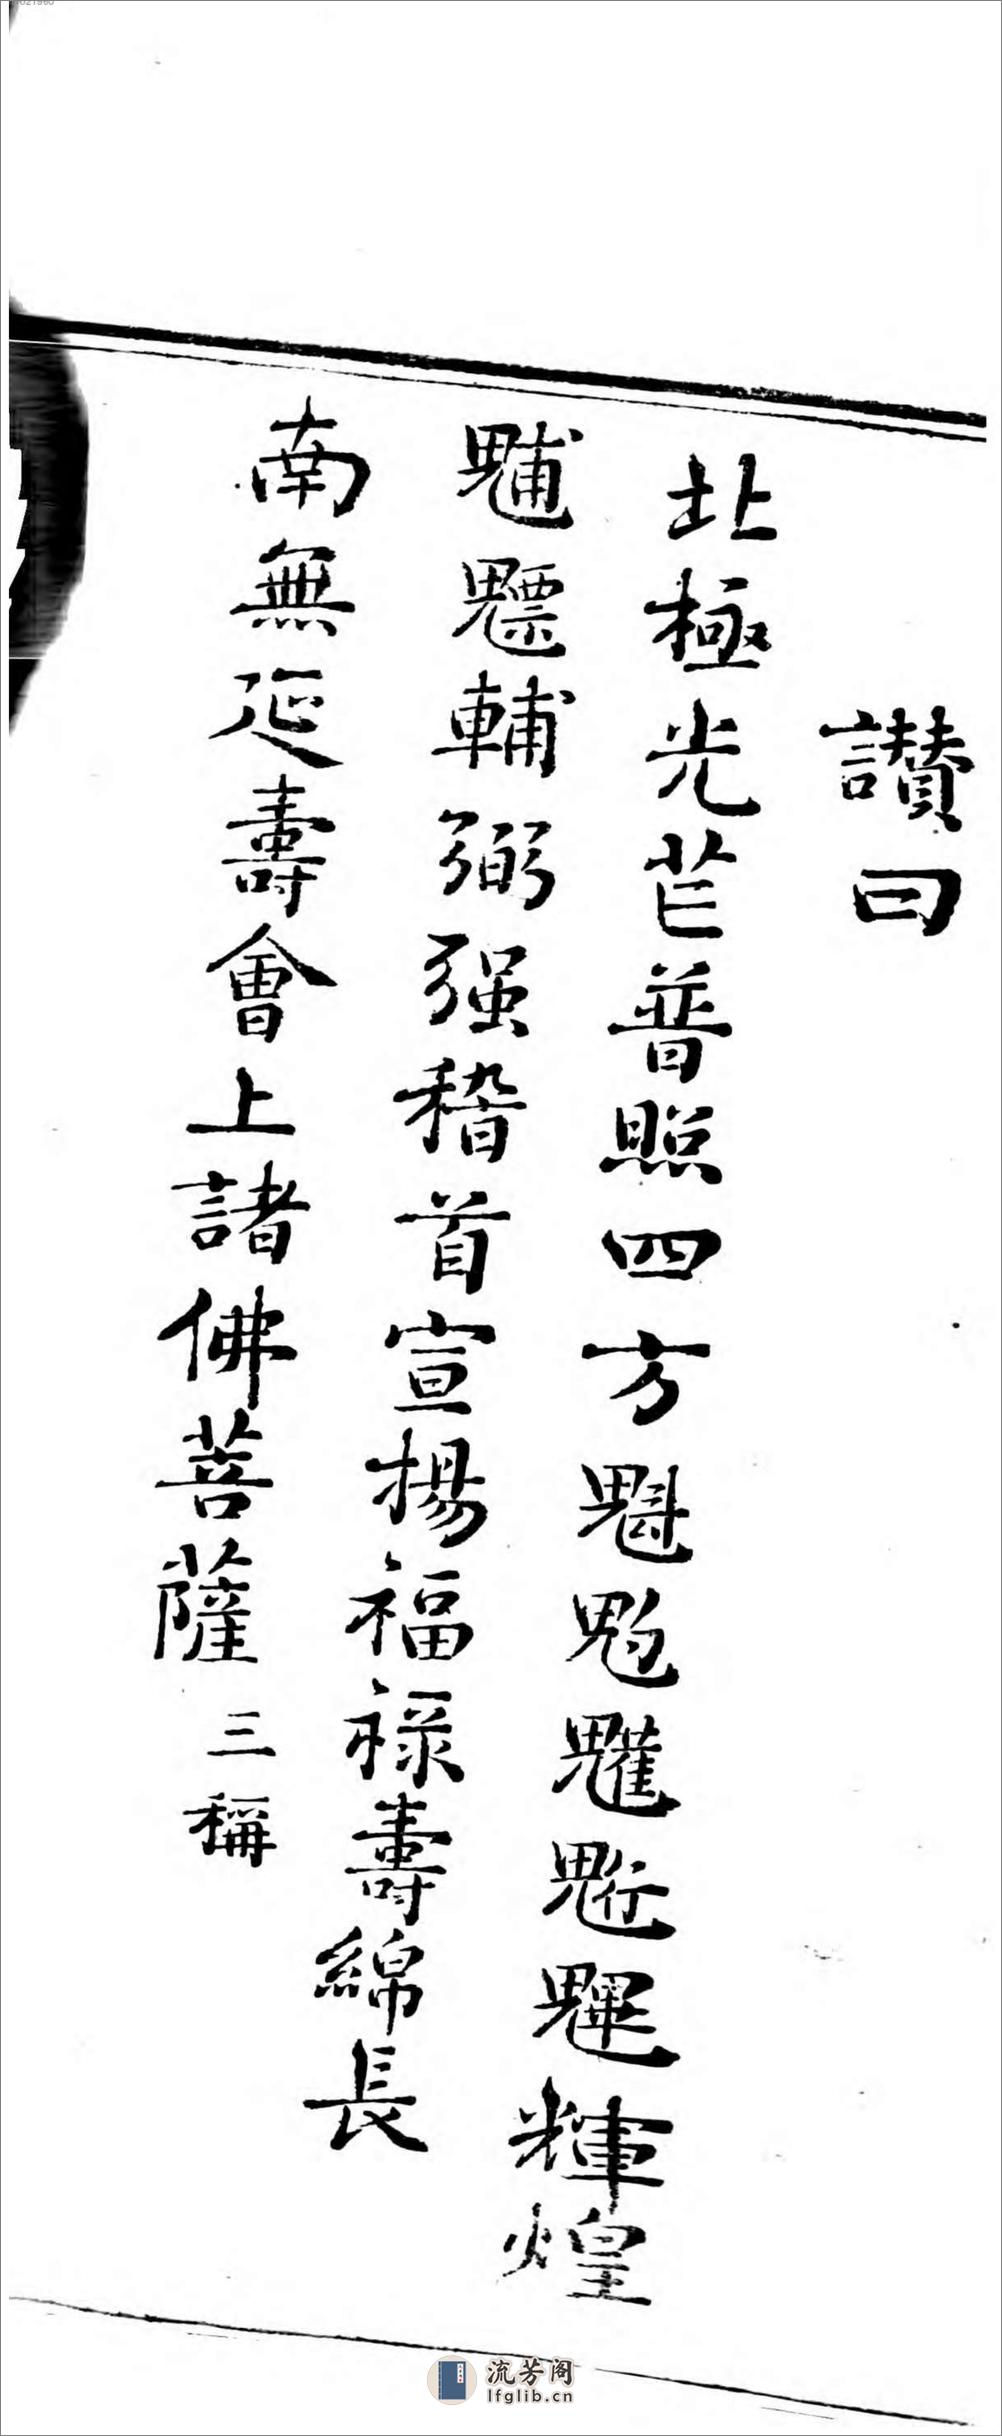 讃曰
北極光芒普照四方魁䰢魓輝煌
䰽魒輔弼强稽首宣揚福禄壽綿長
南無延壽會上諸佛菩薩 三稱
流芳阁
lfglib.cn